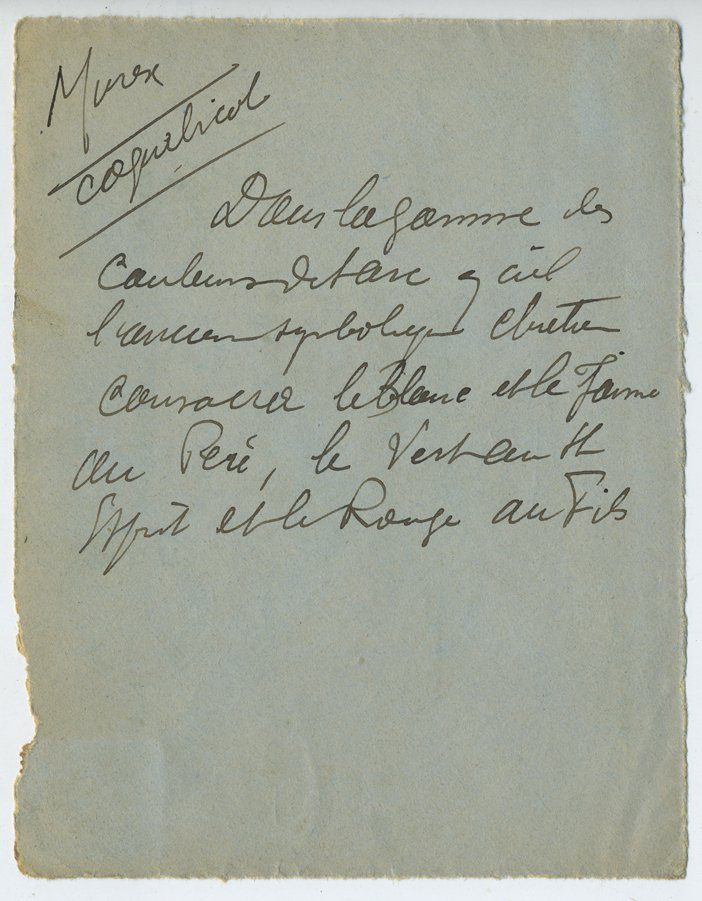 Murex
coquelicot
Dans la gamme des
Couleurs de l'arc
l'ancien symbolique chrétien
consacra le blanc et le Jaune
au Peré, le Vert au St
Esprit et le Rouge au Fils